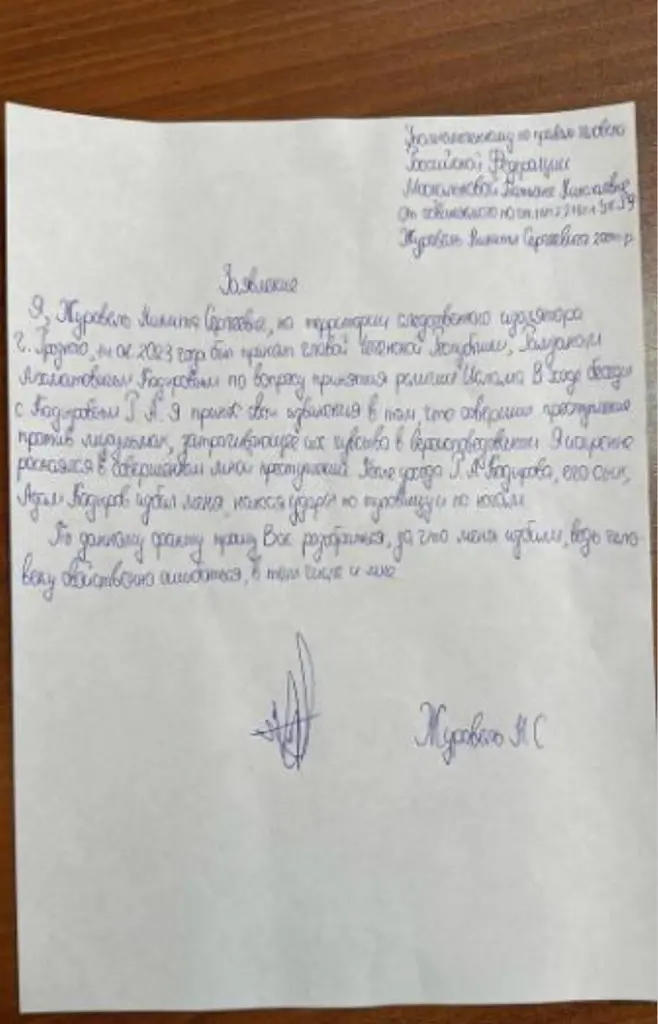 Уполномоченному по правам человека
Российской Федерации
Москальковой Татьяне Николаевне
от обвиняемого по ст.
Журавель Никита Сергеевича 2004 г.р.
Заявление
Я, Журавель Никита Сергеевич, на территории следственного изолятора
г. Грозного, 2023 года был принят главой Чеченской Республики, Рамзаном
Ахматовичем Кадыровым по вопросу принятия религии Ислама. В ходе беседы
с Кадыровым Р. А. Я принёс свои извинения в том, что совершил преступление
против мусульман, затрагивающее их чувства в вероисповедовании. Я искренне
раскаялся в совершенном мной преступлении. После ухода Р. А. Кадырова, его сын,
Адам Кадыров избил меня, нанося удары по туловищу и по ногам.
По данному факту прошу Вас разобраться, за что меня избили, ведь чело-
веку свойственно ошибаться, в том числе и мне.
Журавель Н С